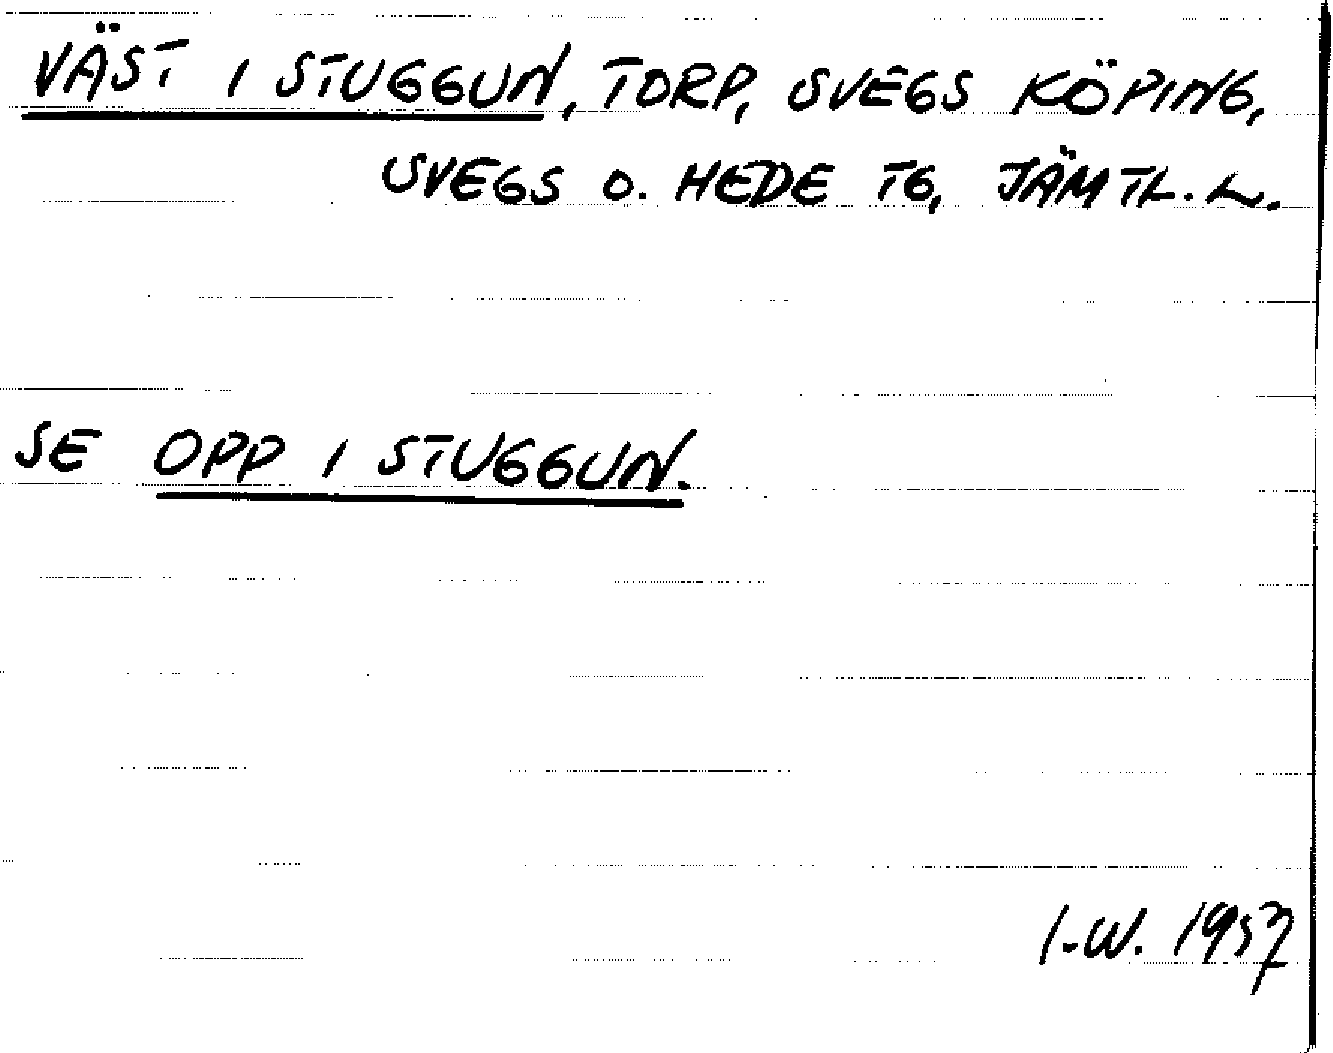 VÄST I STUGGUN, TORP, SVEGS KÖPING,
SVEGS O. HEDE TG, JÄMTL. L.
SE OPP I STUGGUN.
I-W. 1957